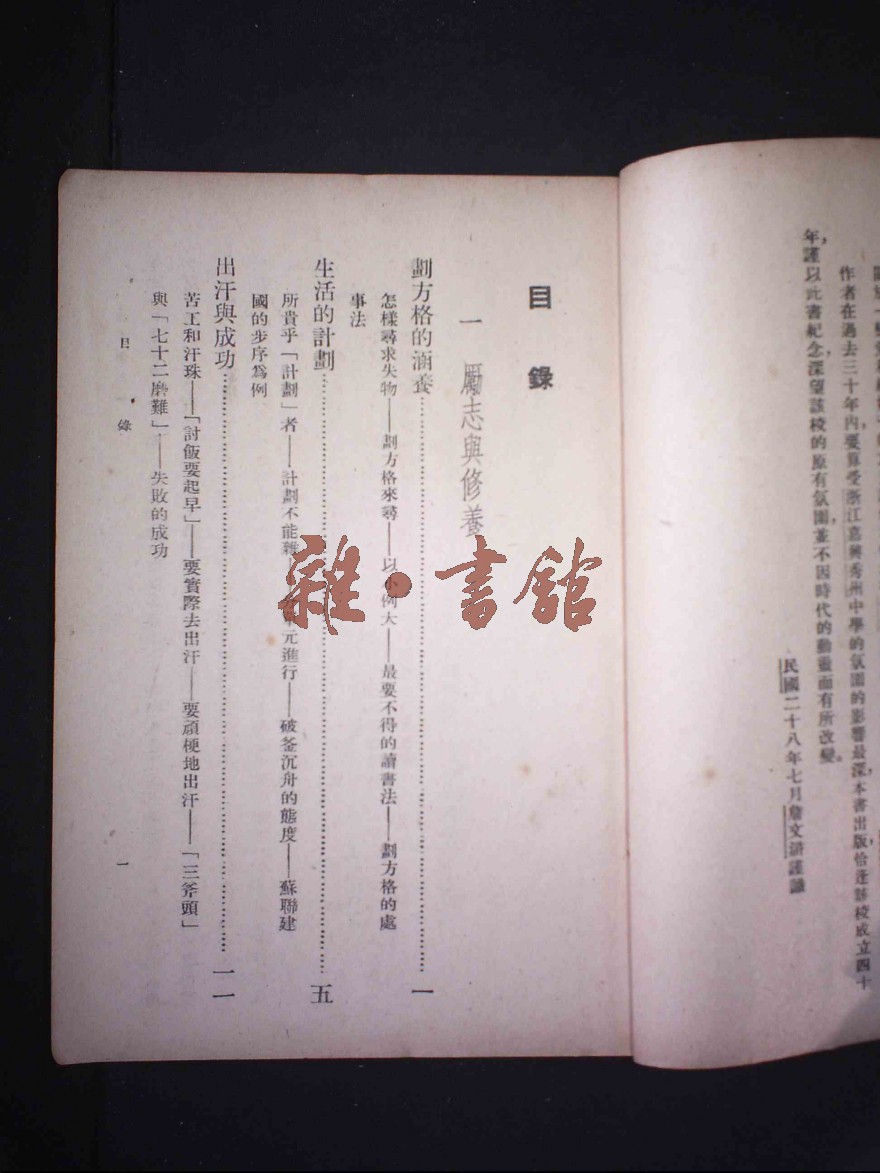 作者在過去三十年內，要算受浙江嘉興秀州中學的氛圍的影響最深，本書出版恰逢該校成立四十
年，謹以此書紀念，深望該校的原有氛圍，並不因時代的動盪而有所改變。
民國二十八年七月詹文滸謹識
目錄
一 勵志與修養
劃方格的涵養……一
怎樣尋求失物——劃方格來尋——以小例大——最要不得的讀書法——劃方格的處
事法
生活的計劃……五
所貴乎「計劃」者——計劃不能雜——分單元進行——破釜沉舟的態度——蘇聯建
國的步序為例
出汗與成功……一一
苦工和汗珠——「討飯要起早」——要實際去出汗——要頑梗地出汗——「三斧頭」
與「七十二磨難」——失敗的成功
目錄
一
雜·書館